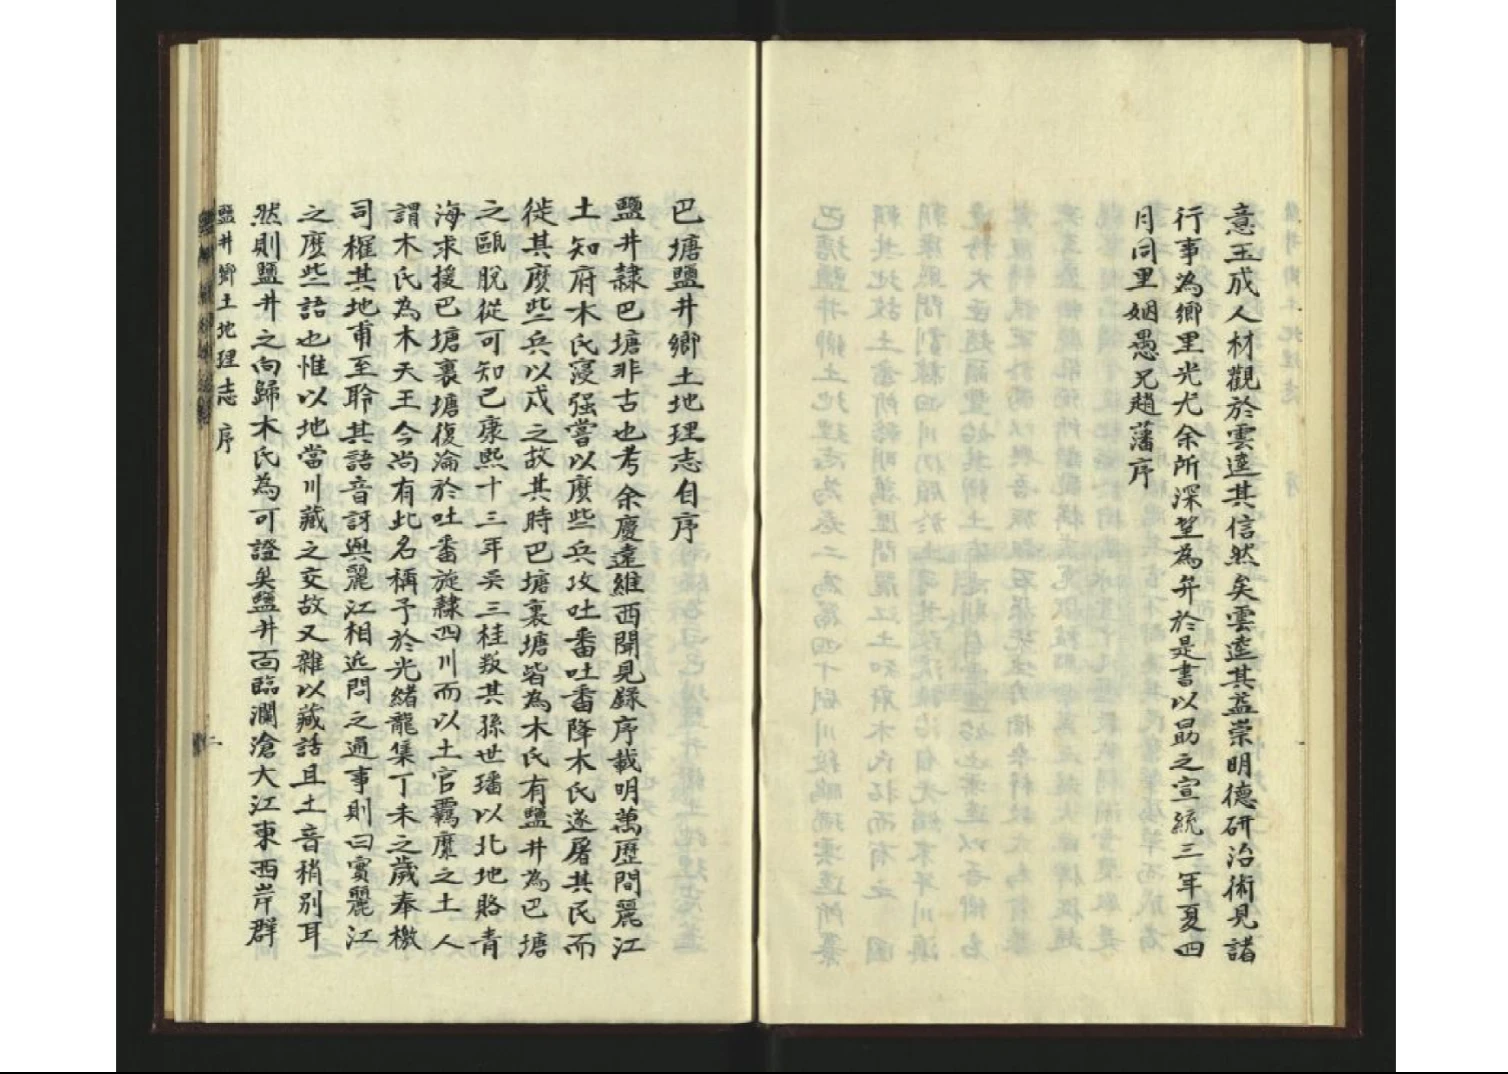 意玉成人材觀於雲逵其信然矣雲逵其益崇明德研治術見諸
行事為鄉里光尤余所深望為弁於是書以勗之宣統三年夏四
月同里姻愚兄趙藩序
巴塘鹽井鄉土地理志自序
鹽井隸巴塘非古也考余慶遠維西聞見録序載明萬歷間麗江
土知府木氏寖强嘗以麽些兵攻吐番吐番降木氏遂屠其民而
徙其麽些兵以戍之故其時巴塘裏塘皆為木氏有鹽井為巴塘
之甌脫從可知已康熙十三年吳三桂叛其孫世璠以北地賂青
海求援巴塘裏塘復淪於吐番旋隸四川而以土官羈縻之土人
謂木氏為木天王今尚有此名稱予於光緒龍集丁未之歲奉檄
司榷其地甫至聆其語音訝與麗江相近問之通事則曰實麗江
之麽些語也惟以地當川藏之交故又雜以藏話且土音稍別耳
然則鹽井之向歸木氏為可證矣鹽井面臨瀾滄大江東西岸群
鹽井鄉土地理志 序
二